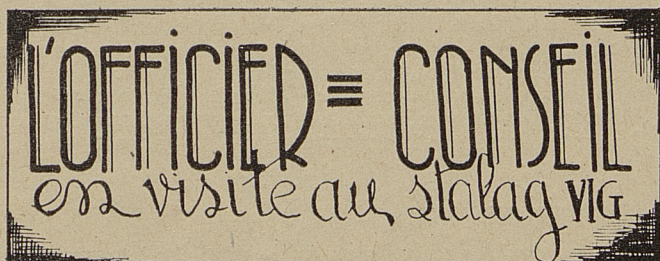 L'OFFICiER ≡ CONSEiL
en visite au stalag VIG